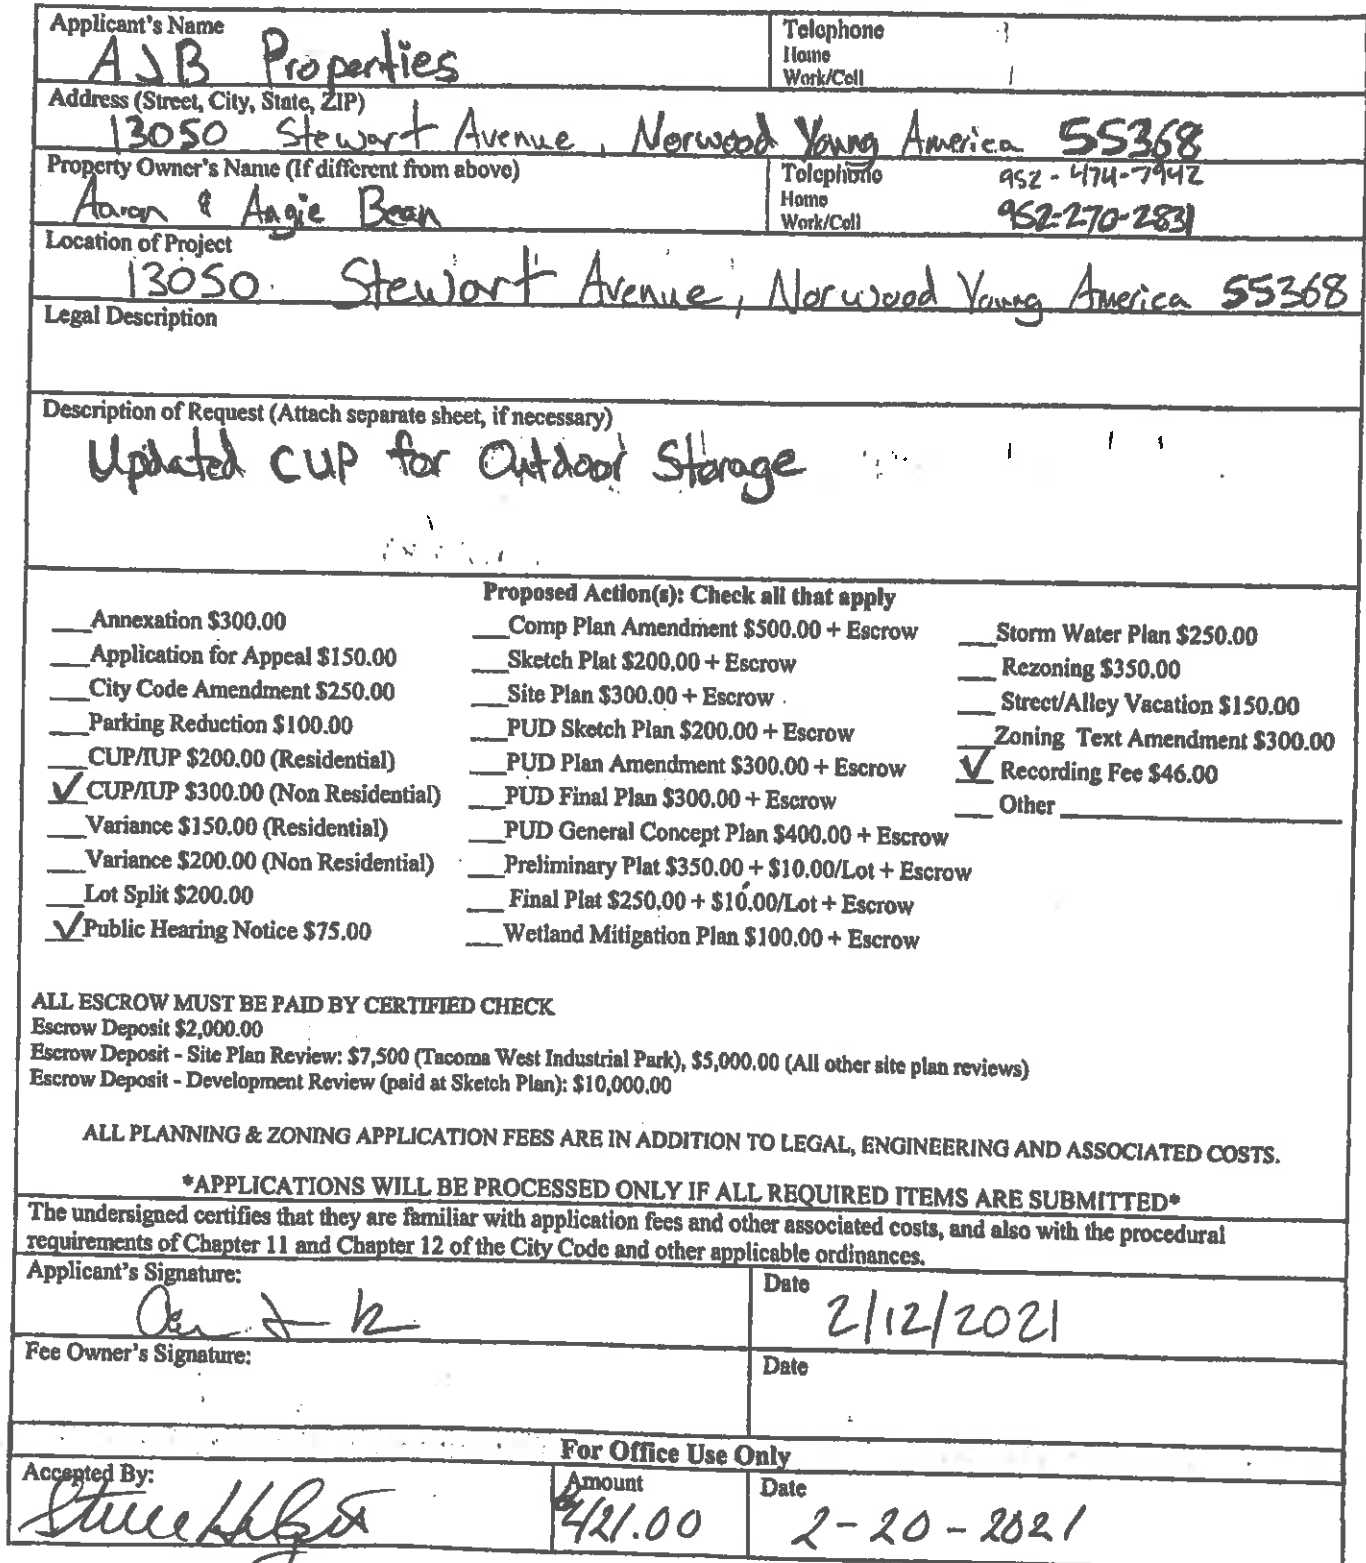 Applicant's Name
AJB Properties
Telephone
Home
Work/Cell
Address (Street, City, State, ZIP)
13050 Stewart Avenue, Norwood Young America 55368
Property Owner's Name (If different from above)
Aaron & Angie Bean
Telephone 952-474-7942
Home
Work/Cell 952-270-2831
Location of Project
13050 Stewart Avenue, Norwood Young America 55368
Legal Description
Description of Request (Attach separate sheet, if necessary)
Updated CUP for Outdoor Storage
Proposed Action(s): Check all that apply
___Annexation $300.00
___Application for Appeal $150.00
___City Code Amendment $250.00
___Parking Reduction $100.00
___CUP/IUP $200.00 (Residential)
✓CUP/IUP $300.00 (Non Residential)
___Variance $150.00 (Residential)
___Variance $200.00 (Non Residential)
___Lot Split $200.00
✓Public Hearing Notice $75.00
___Comp Plan Amendment $500.00 + Escrow
___Sketch Plat $200.00 + Escrow
___Site Plan $300.00 + Escrow
___PUD Sketch Plan $200.00 + Escrow
___PUD Plan Amendment $300.00 + Escrow
___PUD Final Plan $300.00 + Escrow
___PUD General Concept Plan $400.00 + Escrow
___Preliminary Plat $350.00 + $10.00/Lot + Escrow
___ Final Plat $250.00 + $10.00/Lot + Escrow
___Wetland Mitigation Plan $100.00 + Escrow
___Storm Water Plan $250.00
___ Rezoning $350.00
___ Street/Alley Vacation $150.00
___Zoning Text Amendment $300.00
✓ Recording Fee $46.00
___ Other ___
ALL ESCROW MUST BE PAID BY CERTIFIED CHECK
Escrow Deposit $2,000.00
Escrow Deposit - Site Plan Review: $7,500 (Tacoma West Industrial Park), $5,000.00 (All other site plan reviews)
Escrow Deposit - Development Review (paid at Sketch Plan): $10,000.00
ALL PLANNING & ZONING APPLICATION FEES ARE IN ADDITION TO LEGAL, ENGINEERING AND ASSOCIATED COSTS.
*APPLICATIONS WILL BE PROCESSED ONLY IF ALL REQUIRED ITEMS ARE SUBMITTED*
The undersigned certifies that they are familiar with application fees and other associated costs, and also with the procedural
requirements of Chapter 11 and Chapter 12 of the City Code and other applicable ordinances.
Applicant's Signature:
Date
2/12/2021
Fee Owner's Signature:
Date
For Office Use Only
Accepted By:
Amount
$421.00
Date
2-20-2021